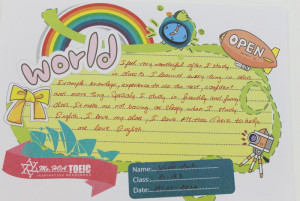 world
OPEN
I feel very wonderful after I study
in class. I learned every thing in class
Example knowledge, experience to use the test, confident
and more thing. Specialy I study in friendly and funny
class. It make me not boring or sleepy when I study
English. I love my class, I love Ms Hoa Toeic to help
me love English
Ms. HOA TOEIC
Name:
Class:
Date: